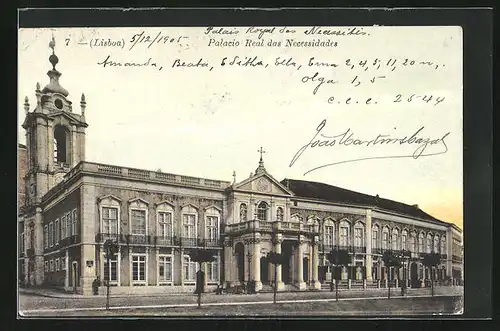 7 — (Lisboa) 5/12/1905 Palacio Royal das Necessitis.
Palacio Real das Necessidades
Amanda, Beata, Editha, Ella, Ema 2, 4, 5, 11, 20 n,
Olga 1, 5
c. c. c. 25-44
João Martins